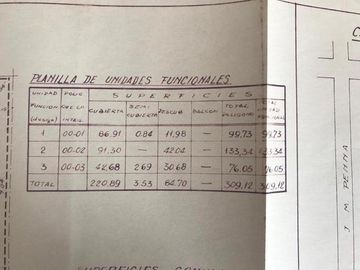 PLANILLA DE UNIDADES FUNCIONALES
UNIDAD FUNCION. (design) POLIG. QUE LO INTEG. SUPERFICIES
CUBIERTA SEMI CUBIERTA DESCUB. BALCON TOTAL POLIGONO TOTAL UNIDAD FUNCIONAL
1 00-01 86,91 0.84 11,98 — 99,73 99,73
2 00-02 91,30 — 42,04 — 133,34 133,34
3 00-03 42,68 2.69 30,68 — 76,05 76,05
TOTAL 220,89 3.53 84,70 — 309,12 309,12
J. M. PENNA